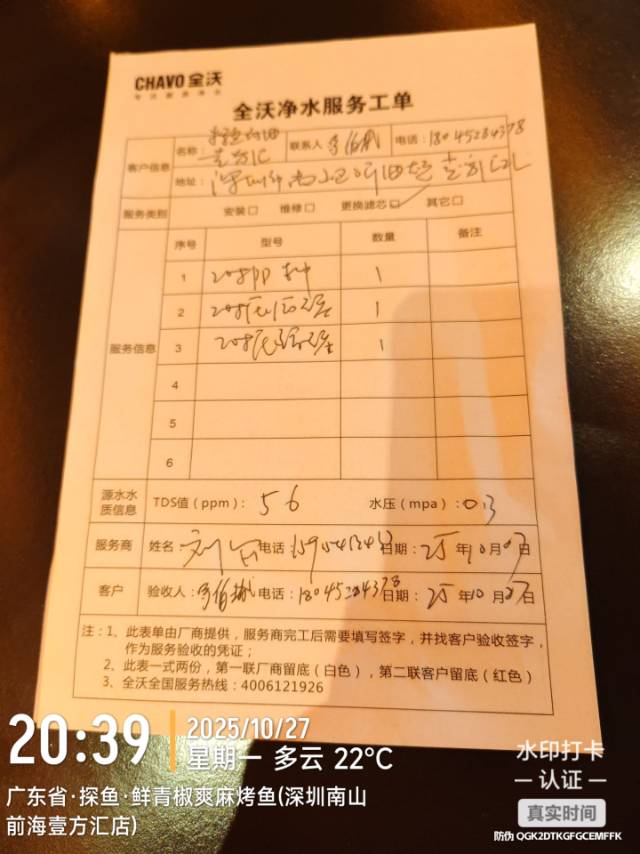 CHAVO 全沃
全沃净水服务工单
客户信息 名称: 壹方汇 联系人 电话:18045284378
地址:
服务类别 安装□ 维修□ 更换滤芯☑ 其它□
服务信息 序号 型号 数量 备注
1 1
2 1
3 1
4
5
6
源水水质信息 TDS值(ppm): 56 水压(mpa): 0.3
服务商 姓名: 刘 电话: 日期: 25年10月27日
客户 验收人: 电话:18045284378 日期: 25年10月27日
注:1、此表单由厂商提供,服务商完工后需要填写签字,并找客户验收签字,
作为服务验收的凭证;
2、此表一式两份,第一联厂商留底(白色),第二联客户留底(红色)
3、全沃全国服务热线:4006121926
20:39
2025/10/27
星期一 多云 22°C
广东省·探鱼·鲜青椒爽麻烤鱼(深圳南山
前海壹方汇店)
水印打卡
认证
真实时间
防伪 QGK2DTKGFGCEMFFK